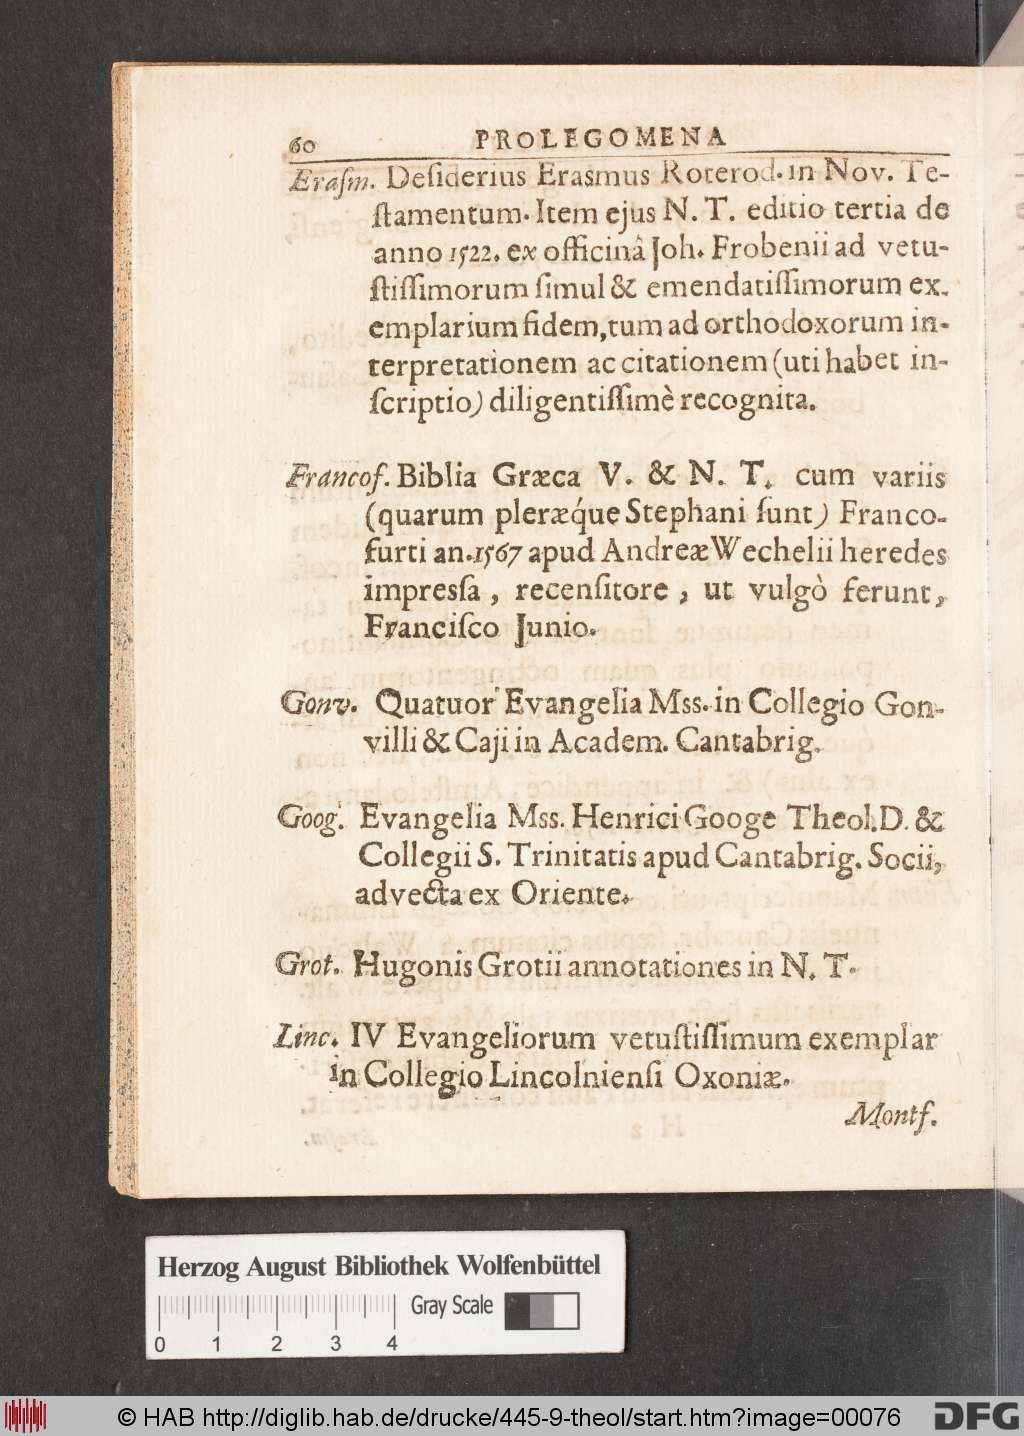 60 PROLEGOMENA
Eraſm. Deſiderius Erasmus Roterod. in Nov. Te-
ſtamentum. Item ejus N. T. editio tertia de
anno 1522. ex officinâ Joh. Frobenii ad vetu-
ſtiſſimorum ſimul & emendatiſſimorum ex.
emplarium fidem, tum ad orthodoxorum in-
terpretationem ac citationem (uti habet in-
ſcriptio) diligentiſſimè recognita.
Francof. Biblia Græca V. & N. T. cum variis
(quarum pleræq́ue Stephani ſunt) Franco-
furti an. 1567 apud Andreæ Wechelii heredes
impressa, recenſitore, ut vulgò ferunt,
Franciſco Junio.
Gonv. Quatuor Evangelia Mss. in Collegio Gon-
villi & Caji in Academ. Cantabrig.
Goog. Evangelia Mss. Henrici Googe Theol. D. &
Collegii S. Trinitatis apud Cantabrig. Socii,
advecta ex Oriente.
Grot. Hugonis Grotii annotationes in N. T.
Linc. IV Evangeliorum vetuſtiſſimum exemplar
in Collegio Lincolnienſi Oxoniæ.
Montf.
Herzog August Bibliothek Wolfenbüttel
Gray Scale
0 1 2 3 4
© HAB http://diglib.hab.de/drucke/445-9-theol/start.htm?image=00076
DFG